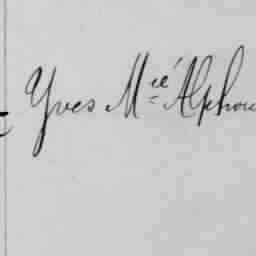 Yves Mie Alphon